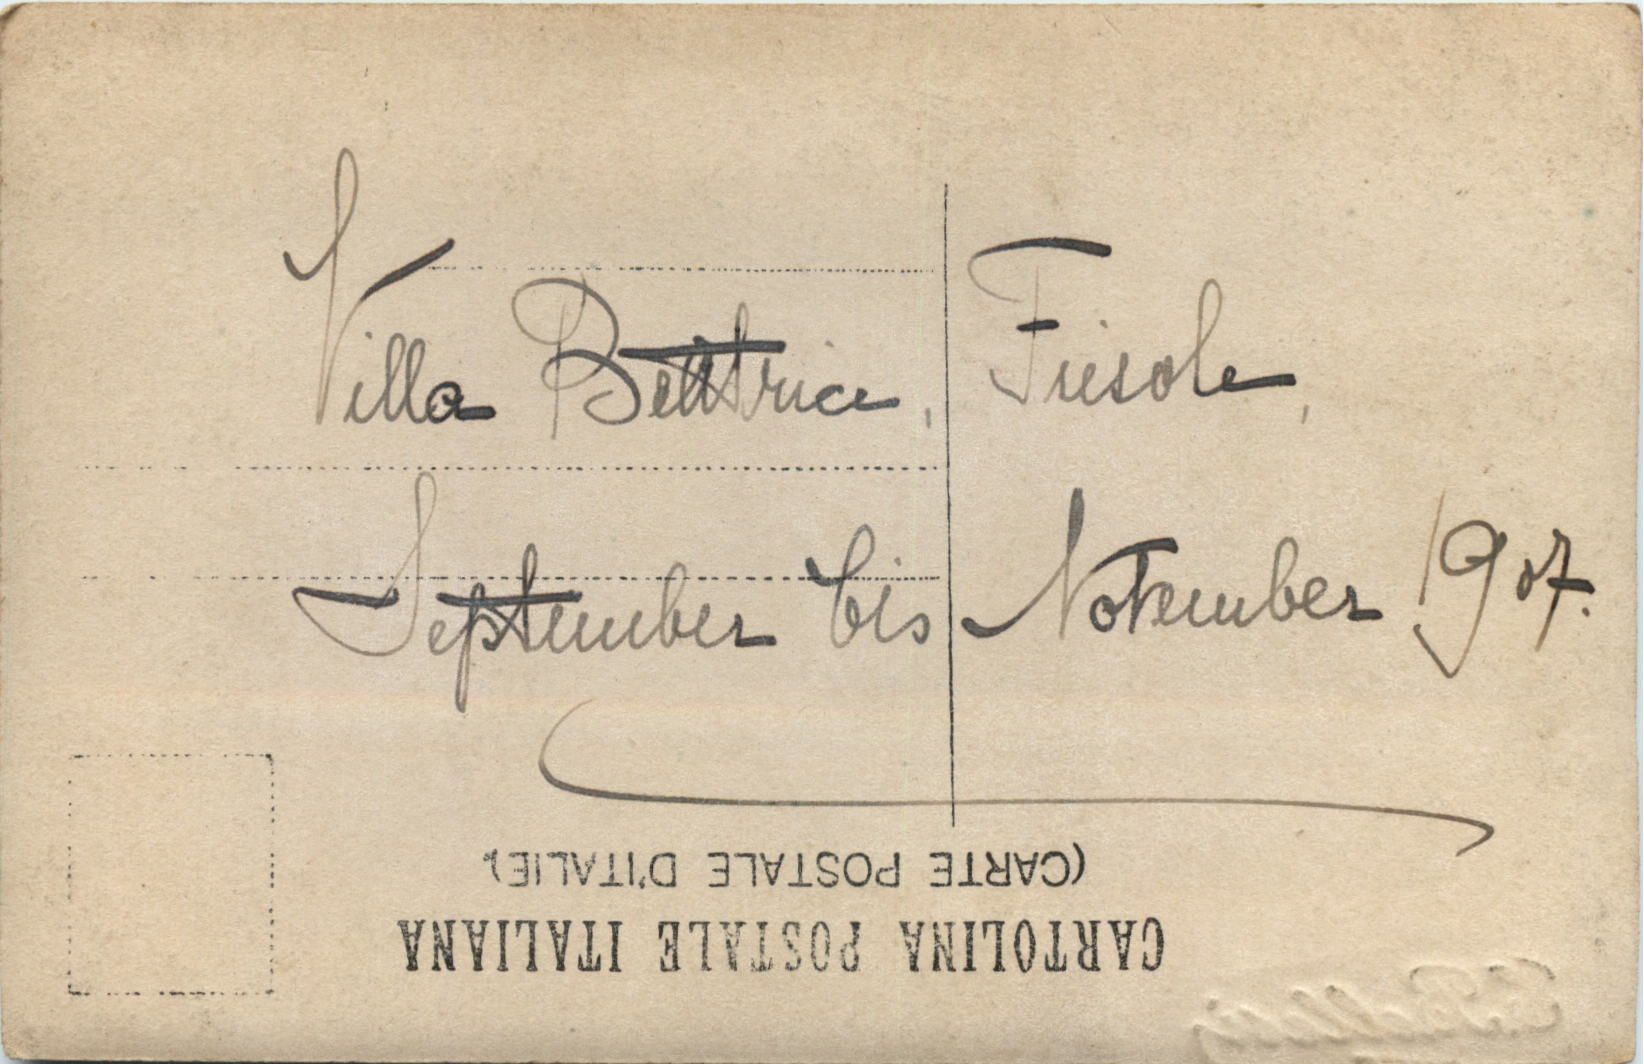 Villa Bettrice, Fiesole,
September bis November 1907.
(CARTE POSTALE D'ITALIE)
CARTOLINA POSTALE ITALIANA